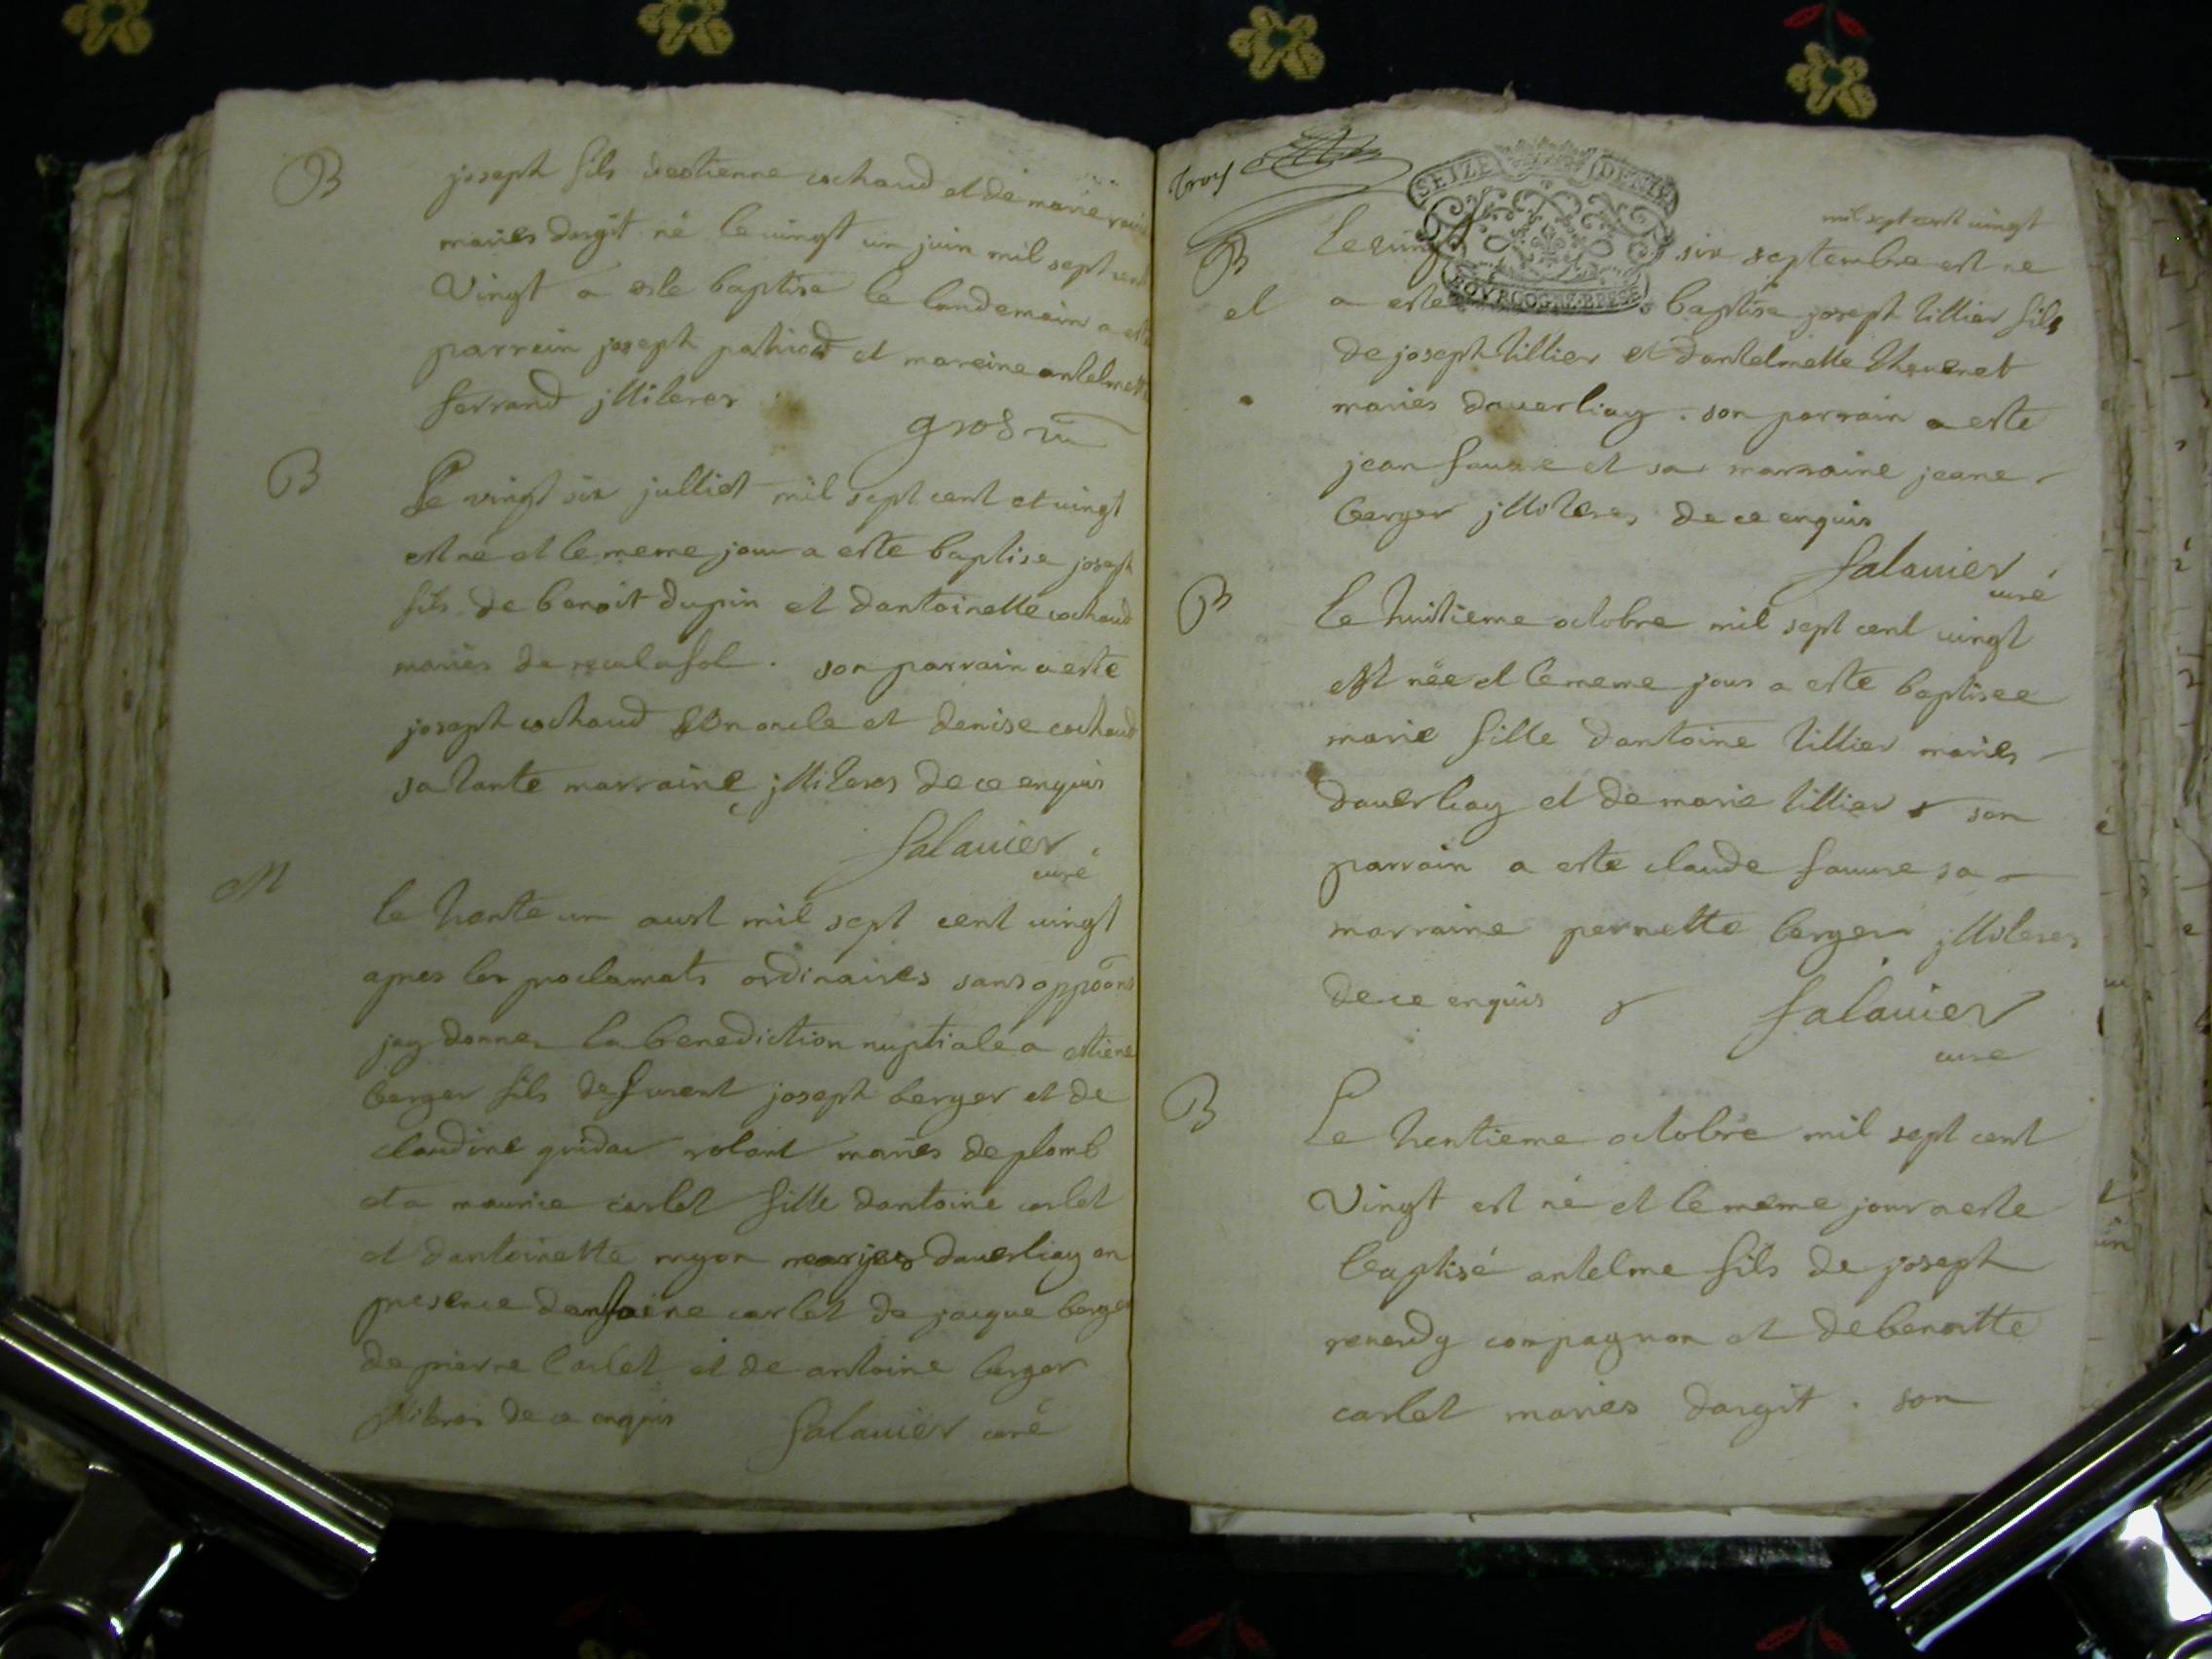 B
joseph fils destienne cochaud et de marie
mariés dargit né le vingt un juin mil sept cent
Vingt a este baptise le landemain a este
parrein joseph et mareine antelmette
ferrand jlliteres
gros
B
Le vingt six julliet mil sept cent et vingt
est né et le meme jour a esté baptise joseph
fils de benoit dupin et dantoinette cochaud
mariés de reculafol . son parrain a esté
joseph cochaud son oncle et denise cochaud
sa tante marraine jlliteres de ce enquis
Salauier
curé
M
le trante un aust mil sept cent vingt
apres les proclamats ordinaires sans oppoōns
jay donner la benediction nuptiale a estiene
berger fils de furent joseph berger et de
claudine volant mariés de plomb
et a maurice carlet fille dantoine carlet
et dantoinette myon marjes dauerliay en
presence dantoine carlet de jacque berger
de pierre Carlet et de antoine berger
jlliteres de ce enquis Salauier curé
troy
SEIZE DENIE
BOVRGOG.NE.BRESSE
mil sept cent vingt
B Le vingt six septembre est ne
et a esté baptise joseph tillier fils
de joseph tillier et dantelmette theuenet
mariés dauerliay . son parrain a esté
jean fauure et sa marraine jeane
berger jlliteres de ce enquis
Salauier
curé
B
Le huitieme octobre mil sept cent vingt
est née et le meme jour a esté baptisee
marie fille dantoine tillier mariés
dauerliay et de marie tillier son
parrain a esté claude fauure sa
marraine pernette berger jlliteres
de ce enquis Salauier
cure
B
Le trentieme octobre mil sept cent
Vingt est né et le meme jour a este
baptisé antelme fils de joseph
renardy compagnon et de benoitte
carlet mariés dargit . son